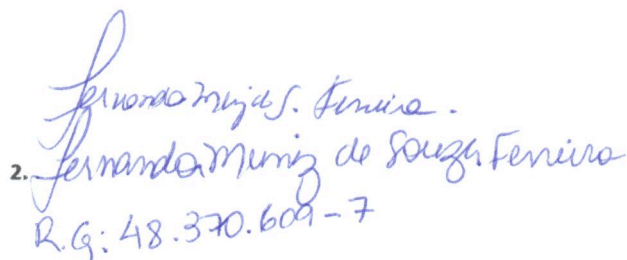 Fernanda Muniz S. Ferreira.
2. Fernanda Muniz de Souza Ferreira
R.G: 48.370.609-7